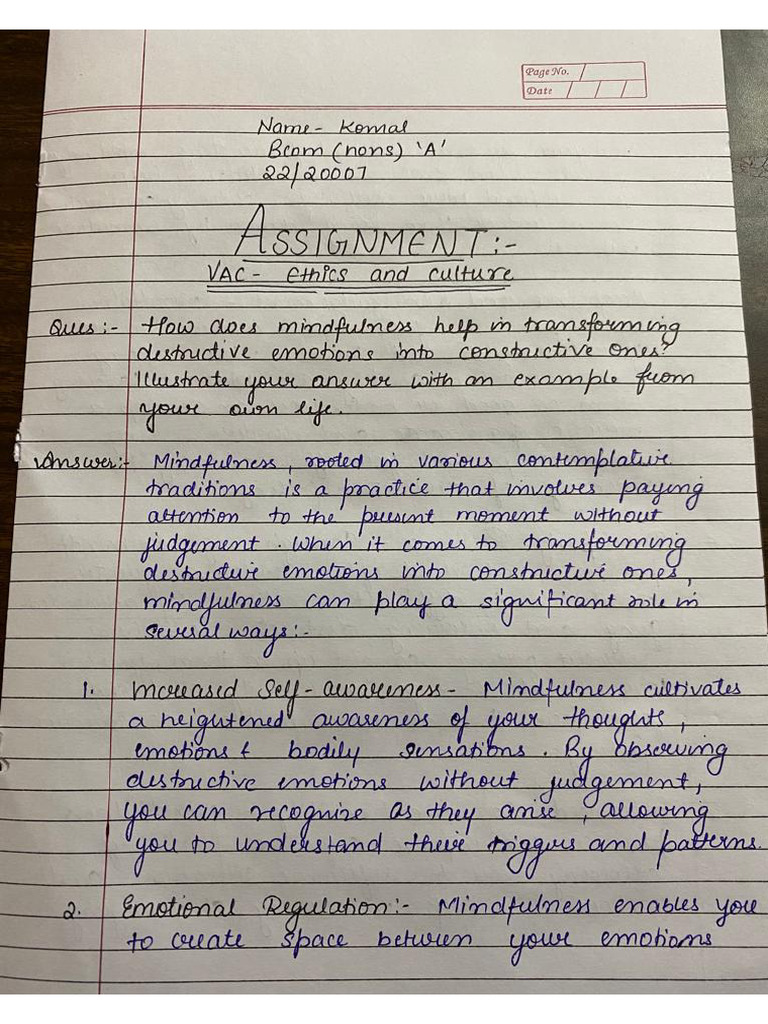 Page No.
Date
Name- Komal
Bcom (hons) 'A'
22/20007
ASSIGNMENT:-
VAC- Ethics and culture
Ques:- How does mindfulness help in transforming
destructive emotions into constructive ones?
Illustrate your answer with an example from
your own life.
Answer:- Mindfulness, rooted in various contemplative
traditions is a practice that involves paying
attention to the present moment without
judgement. When it comes to transforming
destructive emotions into constructive ones,
mindfulness can play a significant role in
several ways:-
1. Increased Self-awareness- Mindfulness cultivates
a heightened awareness of your thoughts,
emotions & bodily sensations. By observing
destructive emotions without judgement,
you can recognize as they arise, allowing
you to understand their triggers and patterns.
2. Emotional Regulation:- Mindfulness enables you
to create space between your emotions